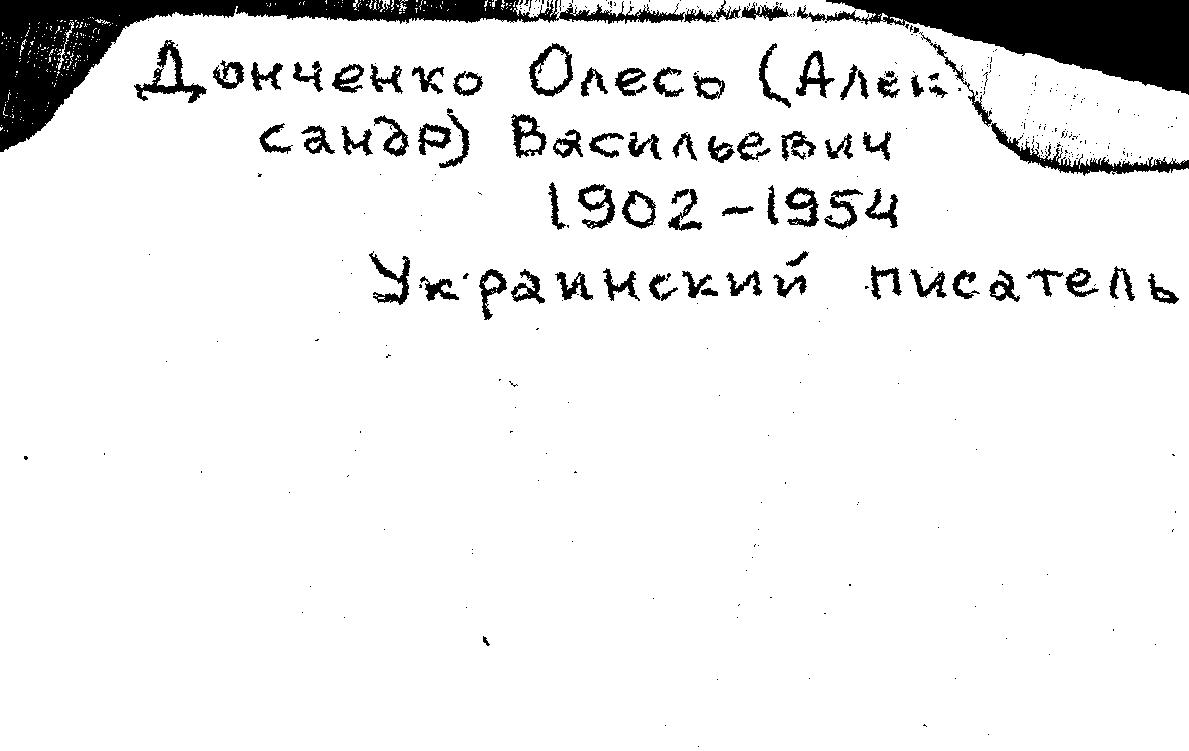 Донченко Олесь (Алек-
сандр) Васильевич
1902-1954
Украинский писатель